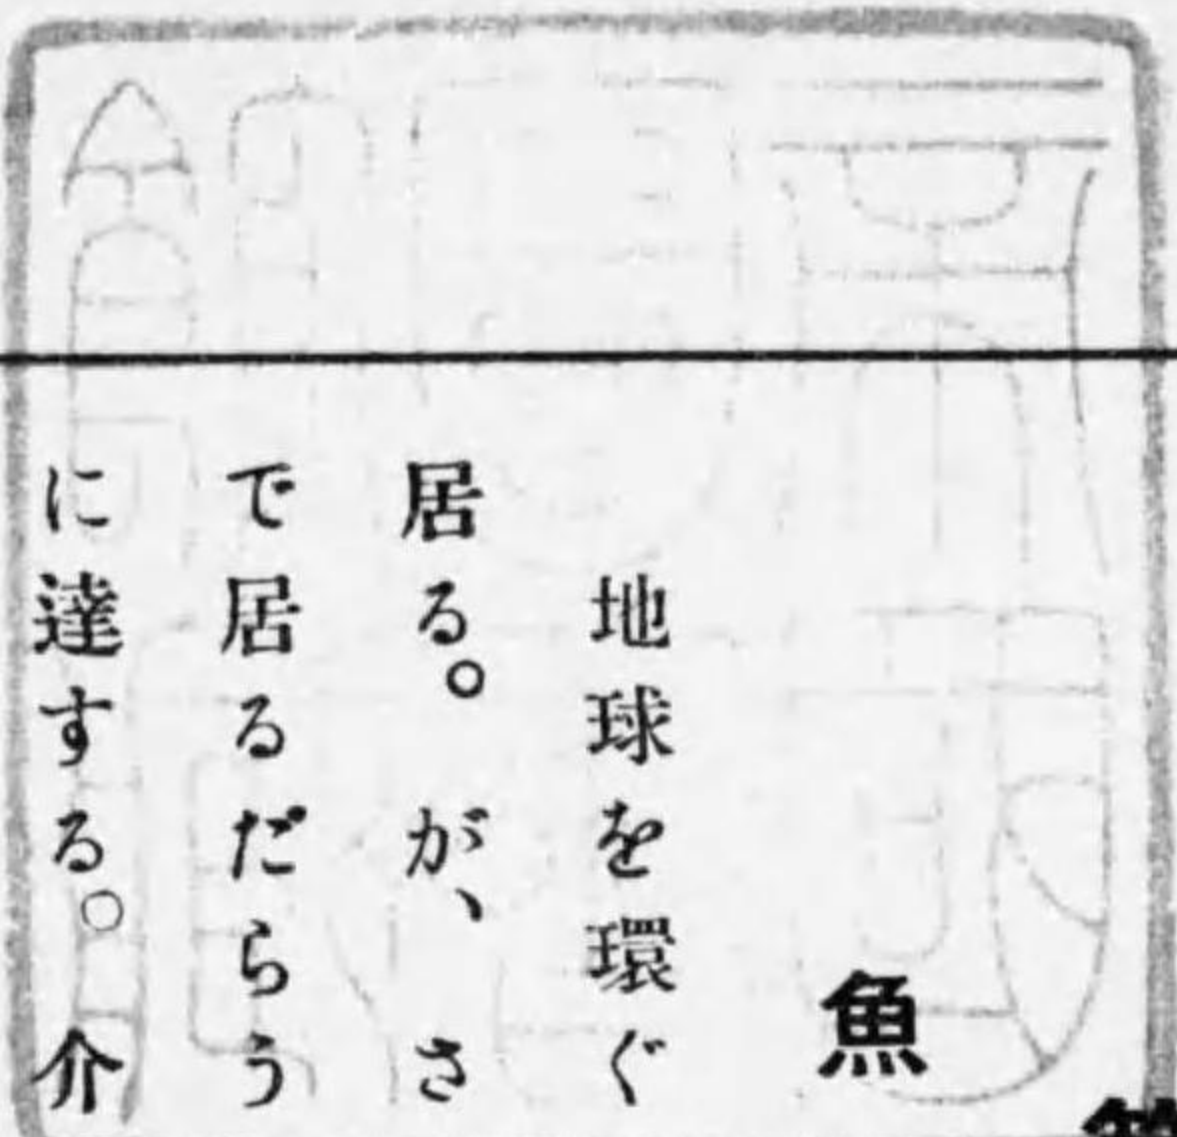 魚
地球を環ぐ
居る。が、さ
で居るだらう
に達する。介